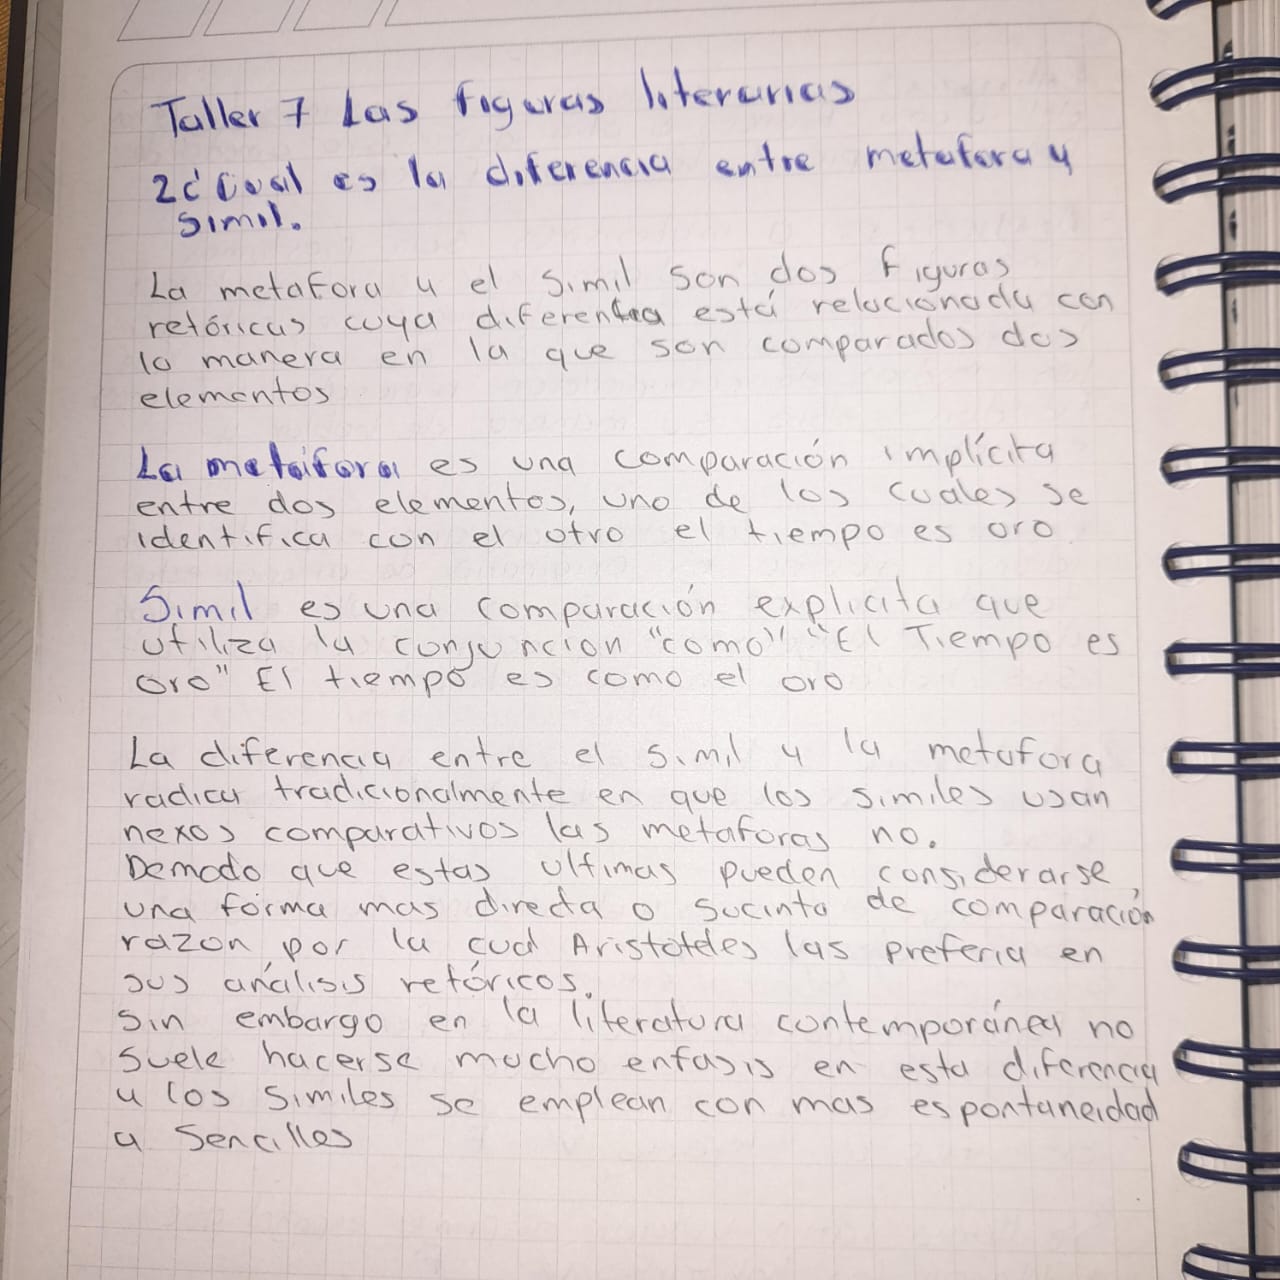 Taller 7 Las figuras literarias
2¿Cual es la diferencia entre metafora y
simil.
La metafora y el simil son dos figuras
retóricas cuya diferencia está relacionada con
la manera en la que son comparados dos
elementos
La metáfora es una comparación implícita
entre dos elementos, uno de los cuales se
identifica con el otro el tiempo es oro
Simil es una comparación explicita que
utiliza la conjuncion "como" "El Tiempo es
oro" El tiempo es como el oro
La diferencia entre el simil y la metafora
radica tradicionalmente en que los similes usan
nexos comparativos las metaforas no.
Demodo que estas ultimas pueden considerarse,
una forma mas directa o sucinta de comparación
razon por la cual Aristoteles las preferia en
sus análisis retóricos.
Sin embargo en la literatura contemporánea no
suele hacerse mucho enfasis en esta diferencia
y los similes se emplean con mas espontaneidad
a sencilles